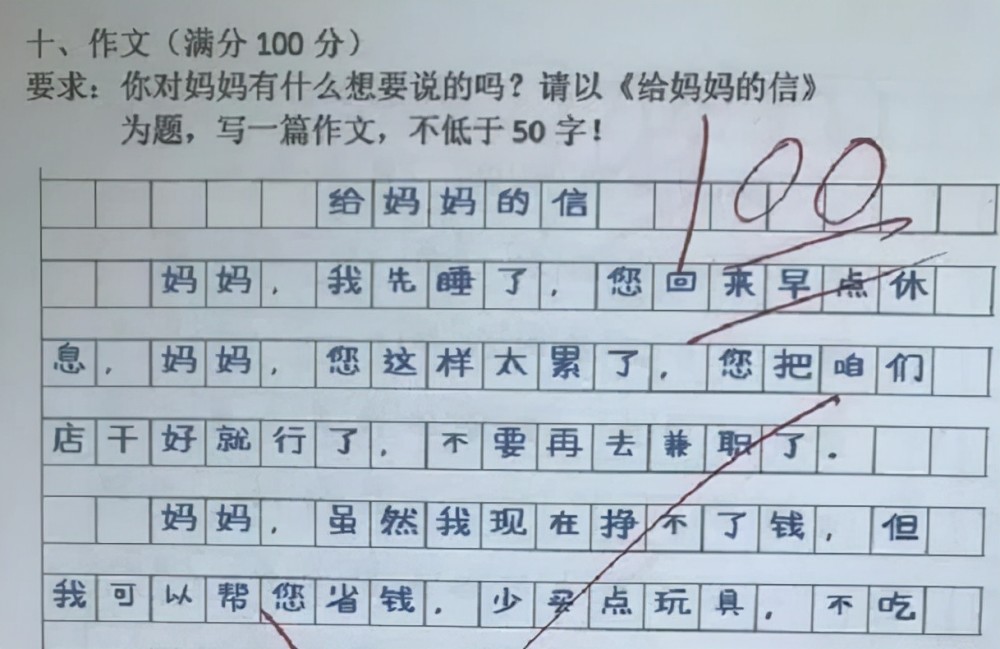 十、作文（满分 100 分）
要求：你对妈妈有什么想要说的吗？请以《给妈妈的信》
为题，写一篇作文，不低于 50 字！
100
给妈妈的信
妈妈，我先睡了，您回来早点休
息，妈妈，您这样太累了，您把咱们
店干好就行了，不要再去兼职了。
妈妈，虽然我现在挣不了钱，但
我可以帮您省钱，少买点玩具，不吃